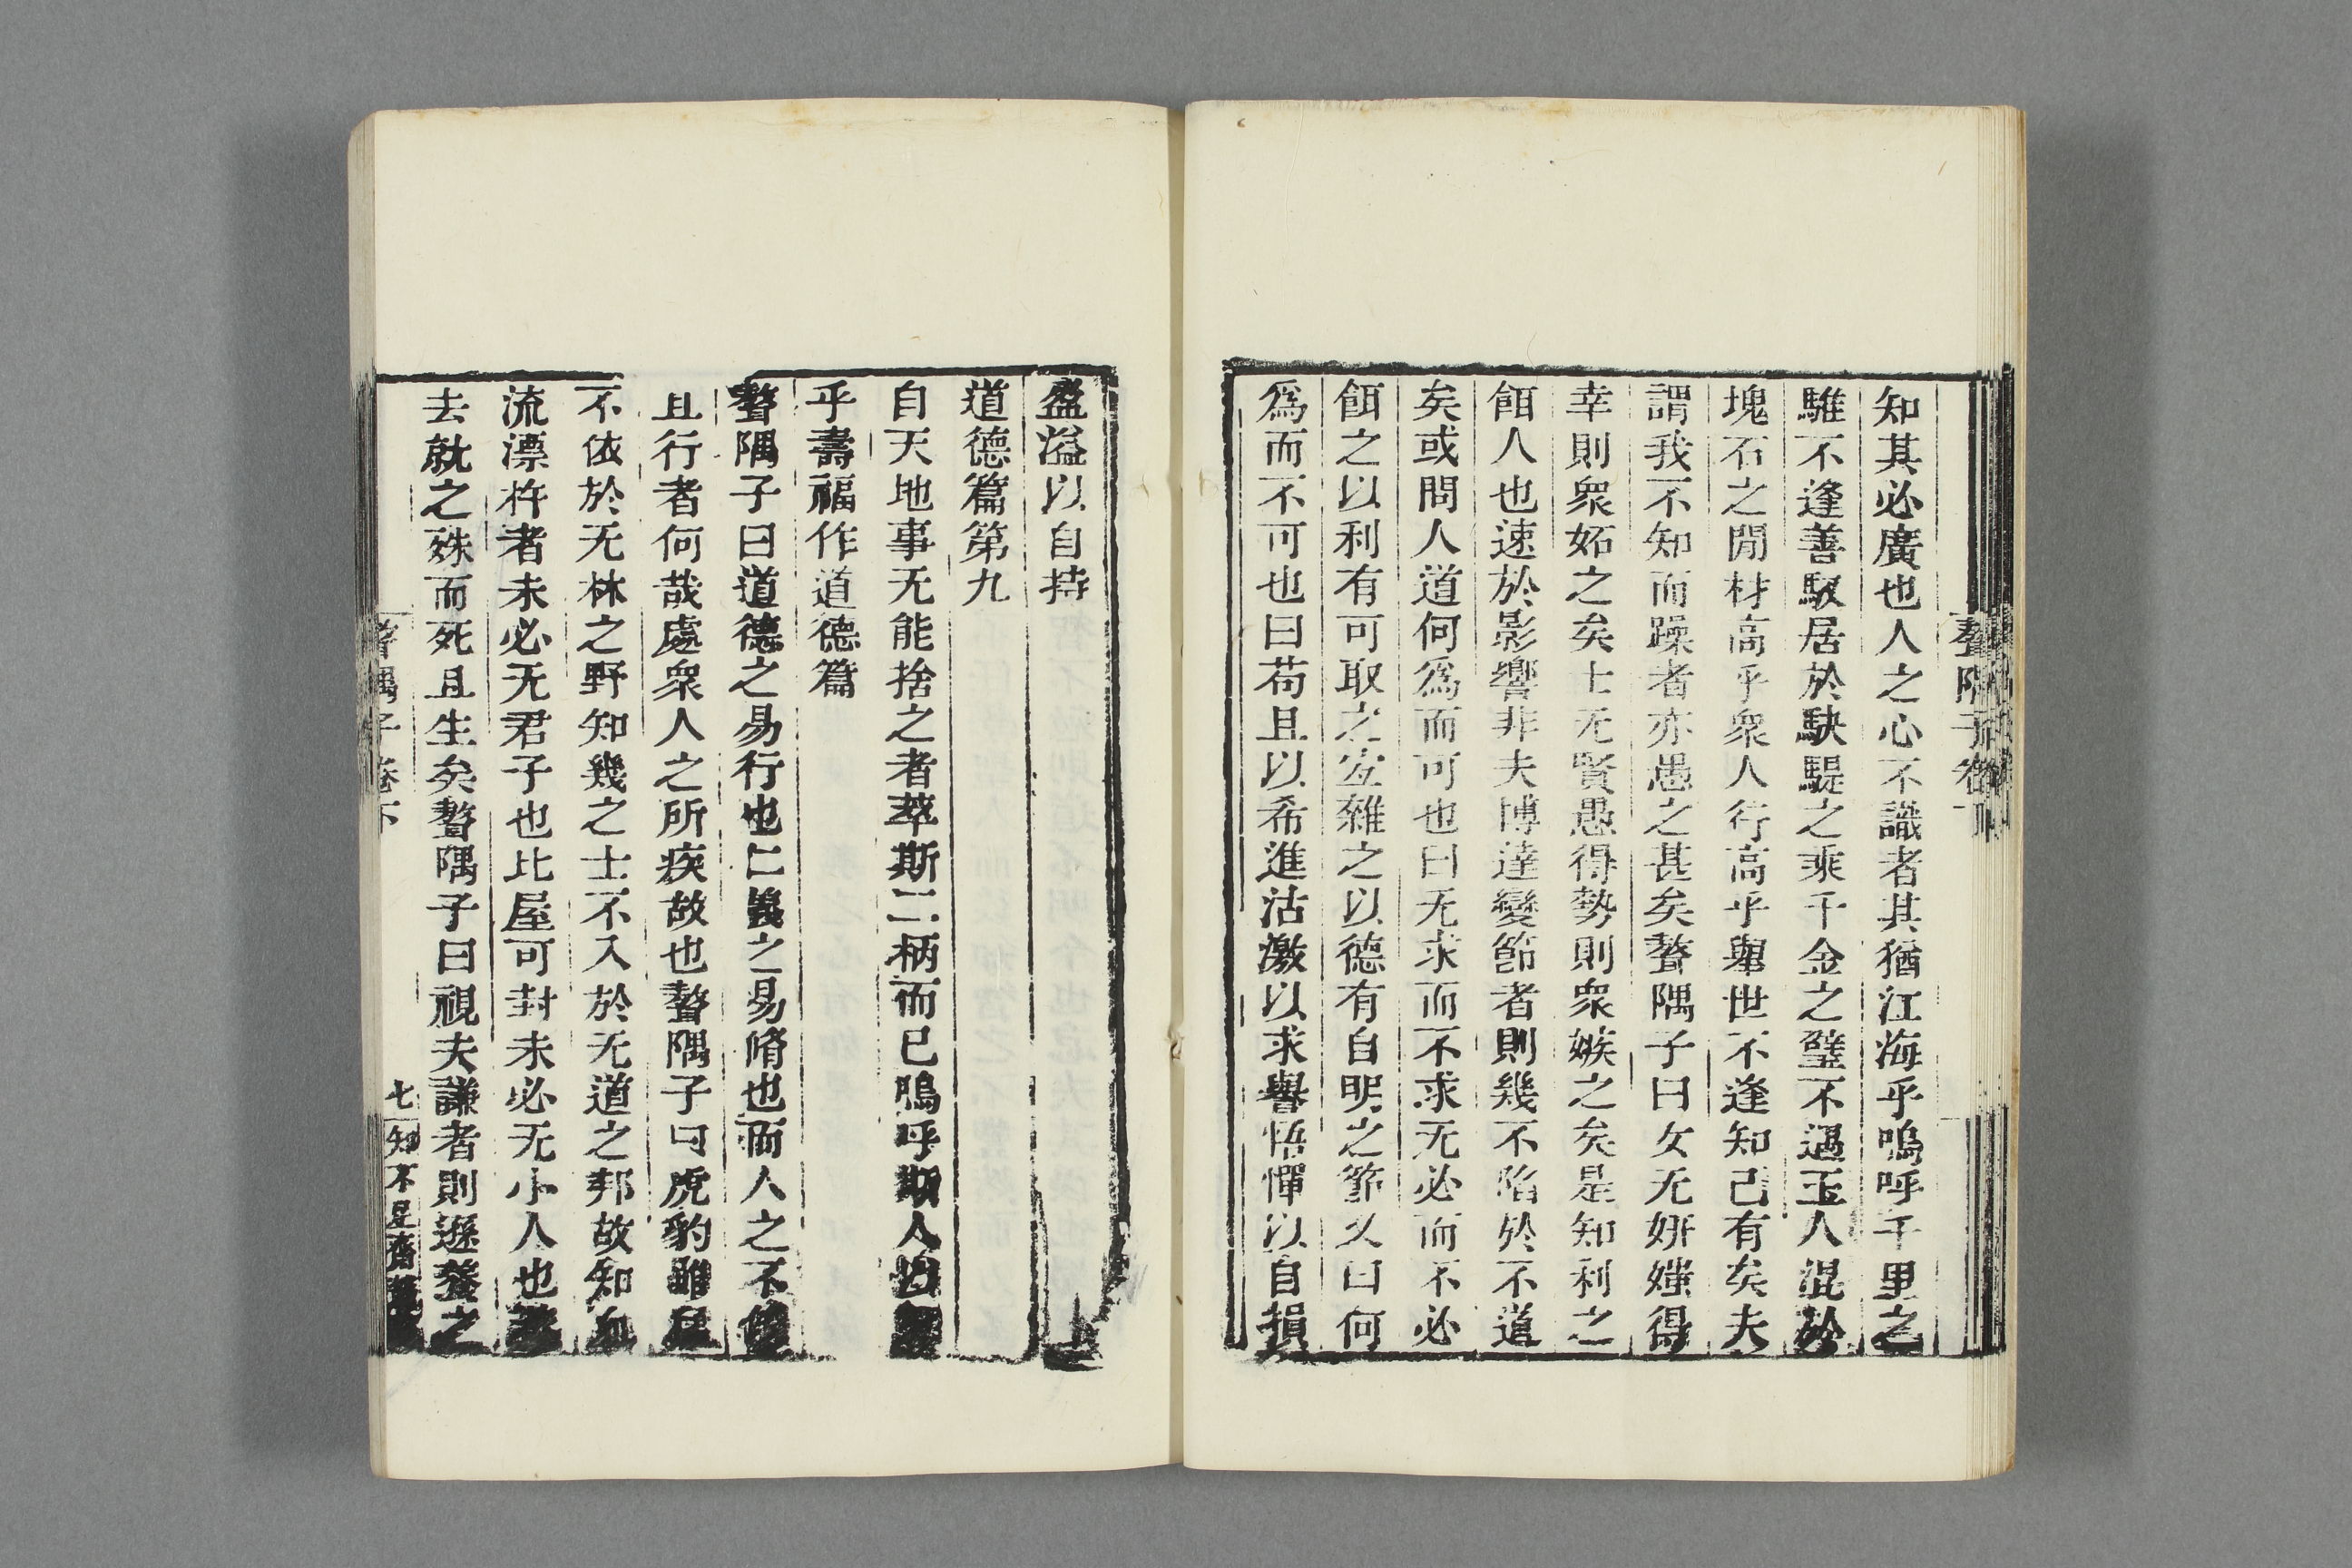 知其必廣也人之心不識者其猶江海乎嗚呼千里之
騅不逢善馭居於駃騠之乘千金之璧不遇玉人混於
塊石之閒材高乎衆人行高乎舉世不逢知己有矣夫
謂我不知而躁者亦愚之甚矣聱隅子曰女无妍媸得
幸則衆妬之矣士无賢愚得勢則衆嫉之矣是知利之
餌人也速於影響非夫博達變節者則幾不陷於不道
矣或問人道何爲而可也曰无求而不求无必而不必
餌之以利有可取之宜雜之以德有自明之節又曰何
爲而不可也曰苟且以希進沽激以求譽悟憚以自損
聱隅子卷下
盈溢以自持
道德篇第九
自天地事无能捨之者萃斯二柄而已嗚呼斯人
乎壽福作道德篇
聱隅子曰道德之易行也仁義之易脩也而人之不
且行者何哉處衆人之所疾故也聱隅子曰虎豹雖
不依於无林之野知幾之士不入於无道之邦故知血
流漂杵者未必无君子也比屋可封未必无小人也
去就之殊而死且生矣聱隅子曰視夫謙者則遜養之
聱隅子卷下
七
知不足齋